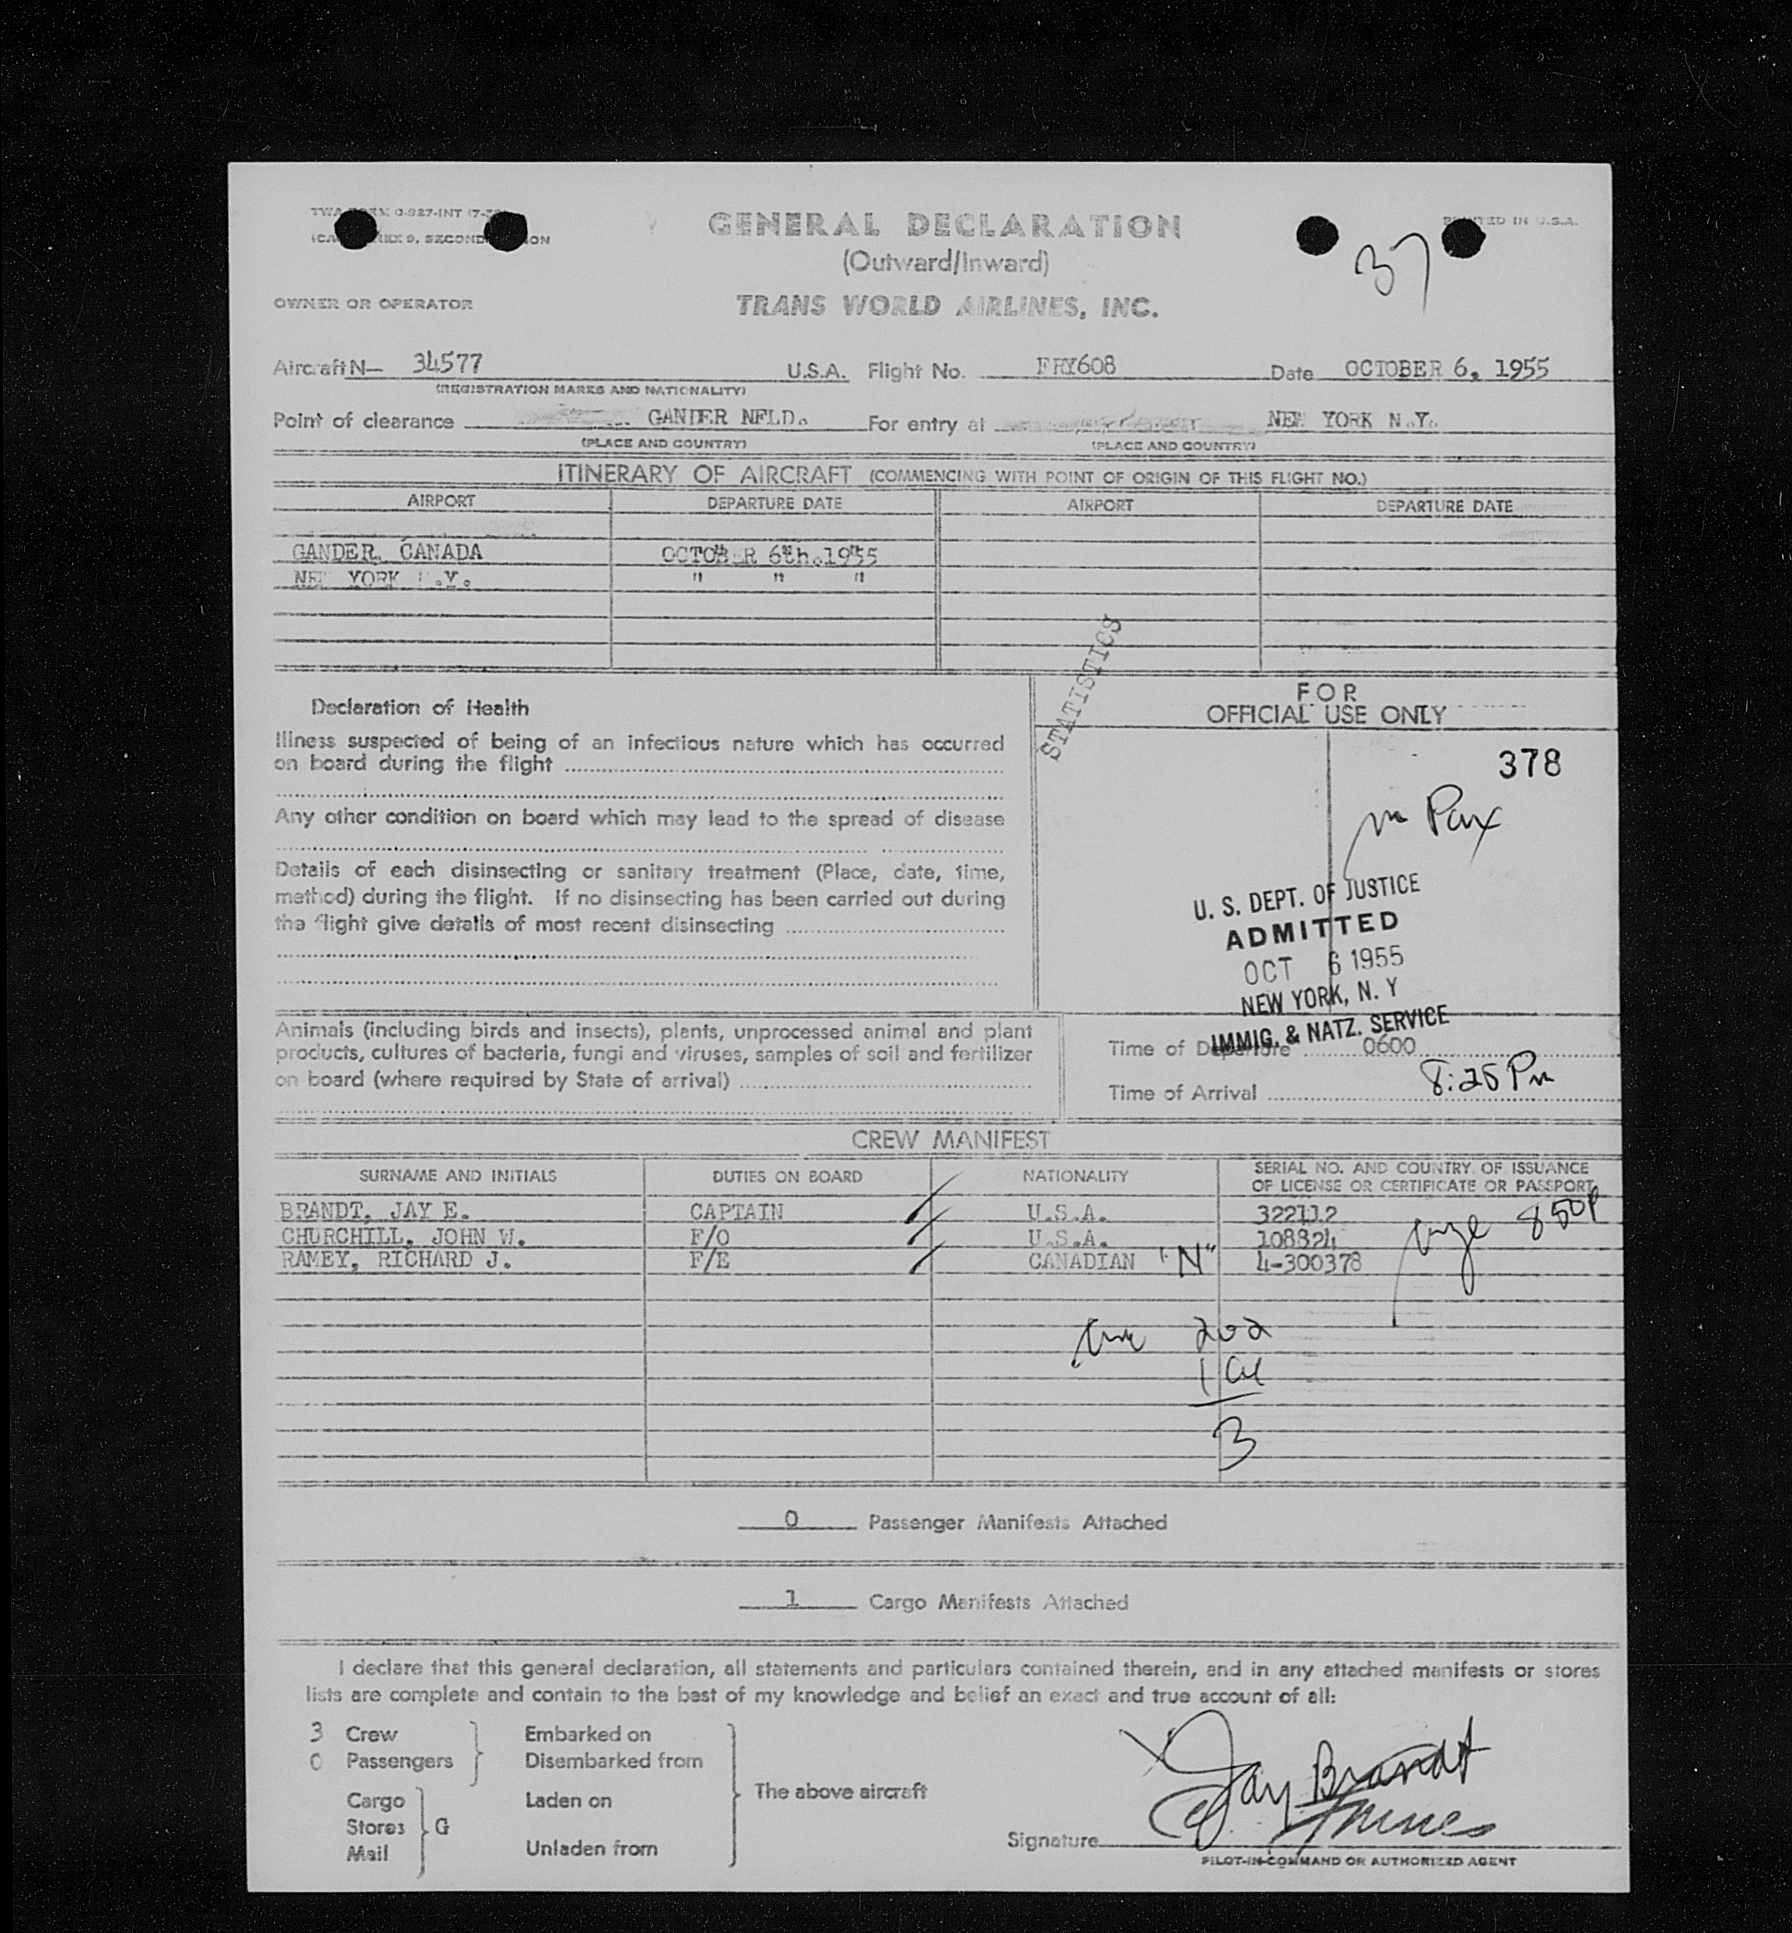 GENERAL DECLARATION
PRINTED IN U.S.A.
(Outward/Inward)
37
OWNER OR OPERATOR
TRANS WORLD AIRLINES, INC.
Aircraft N— 34577 U.S.A. Flight No. FRY608 Date OCTOBER 6, 1955
(REGISTRATION MARKS AND NATIONALITY)
Point of clearance GANDER NFLD. For entry at NEW YORK N.Y.
(PLACE AND COUNTRY) (PLACE AND COUNTRY)
ITINERARY OF AIRCRAFT (COMMENCING WITH POINT OF ORIGIN OF THIS FLIGHT NO.)
AIRPORT DEPARTURE DATE AIRPORT DEPARTURE DATE
GANDER, CANADA OCTOBER 6th.1955
NEW YORK N.Y. " " "
STATISTICS
Declaration of Health
Illness suspected of being of an infectious nature which has occurred
on board during the flight
Any other condition on board which may lead to the spread of disease
Details of each disinsecting or sanitary treatment (Place, date, time,
method) during the flight. If no disinsecting has been carried out during
the flight give details of most recent disinsecting
FOR
OFFICIAL USE ONLY
378
Pax
U. S. DEPT. OF JUSTICE
ADMITTED
OCT 6 1955
NEW YORK, N. Y
IMMIG. & NATZ. SERVICE
Animals (including birds and insects), plants, unprocessed animal and plant
products, cultures of bacteria, fungi and viruses, samples of soil and fertilizer
on board (where required by State of arrival)
Time of Departure 0600
Time of Arrival 8:25 Pm
CREW MANIFEST
SURNAME AND INITIALS DUTIES ON BOARD NATIONALITY SERIAL NO. AND COUNTRY OF ISSUANCE
OF LICENSE OR CERTIFICATE OR PASSPORT
BRANDT, JAY E. CAPTAIN U.S.A. 322112
CHURCHILL, JOHN W. F/O U.S.A. 108824
RAMEY, RICHARD J. F/E CANADIAN "N" 4-300378
850P
202
1
3
0 Passenger Manifests Attached
1 Cargo Manifests Attached
I declare that this general declaration, all statements and particulars contained therein, and in any attached manifests or stores
lists are complete and contain to the best of my knowledge and belief an exact and true account of all:
3 Crew
0 Passengers
Embarked on
Disembarked from
Cargo
Stores G
Mail
Laden on
Unladen from
The above aircraft
Jay Brandt
Signature
PILOT-IN-COMMAND OR AUTHORIZED AGENT